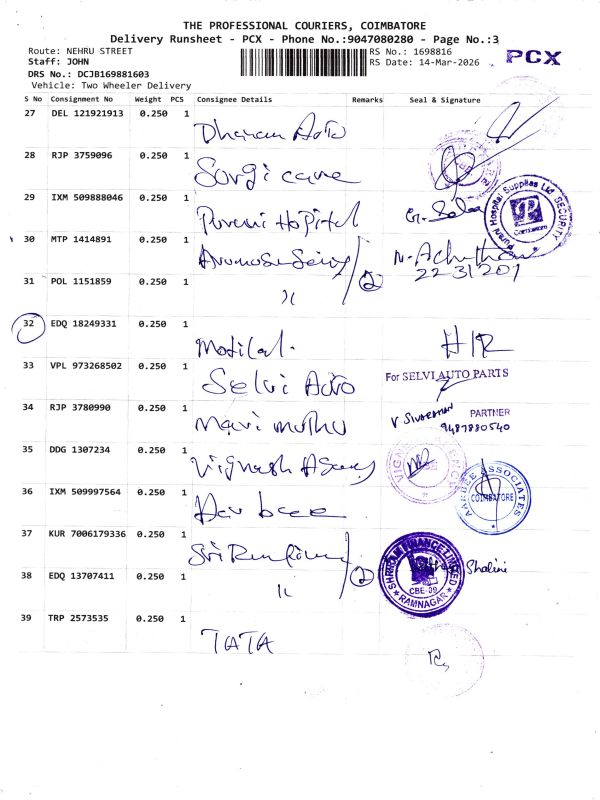 THE PROFESSIONAL COURIERS, COIMBATORE
Delivery Runsheet - PCX - Phone No.:9047080280 - Page No.:3
Route: NEHRU STREET
Staff: JOHN
DRS No.: DCJB169881603
Vehicle: Two Wheeler Delivery
RS No.: 1698816
RS Date: 14-Mar-2026
PCX
S No Consignment No Weight PCS Consignee Details Remarks Seal & Signature
27 DEL 121921913 0.250 1 Dharan Auto
28 RJP 3759096 0.250 1 Surgi care
29 IXM 509888046 0.250 1 Hopital
Hospital Supplies Ltd SECURITY
30 MTP 1414891 0.250 1 2
22-31201
31 POL 1151859 0.250 1 "
32 EDQ 18249331 0.250 1 Motilal.
33 VPL 973268502 0.250 1 Selvi Auto
For SELVI AUTO PARTS
34 RJP 3780990 0.250 1 Mari muthu
PARTNER
9487880540
35 DDG 1307234 0.250 1 Vignesh Agency
36 IXM 509997564 0.250 1
AARBEE ASSOCIATES COIMBATORE
37 KUR 7006179336 0.250 1 Sri 2
SHRIRAM FINANCE LIMITED CBE-09 RAMNAGAR
Shalini
38 EDQ 13707411 0.250 1 "
39 TRP 2573535 0.250 1 TATA